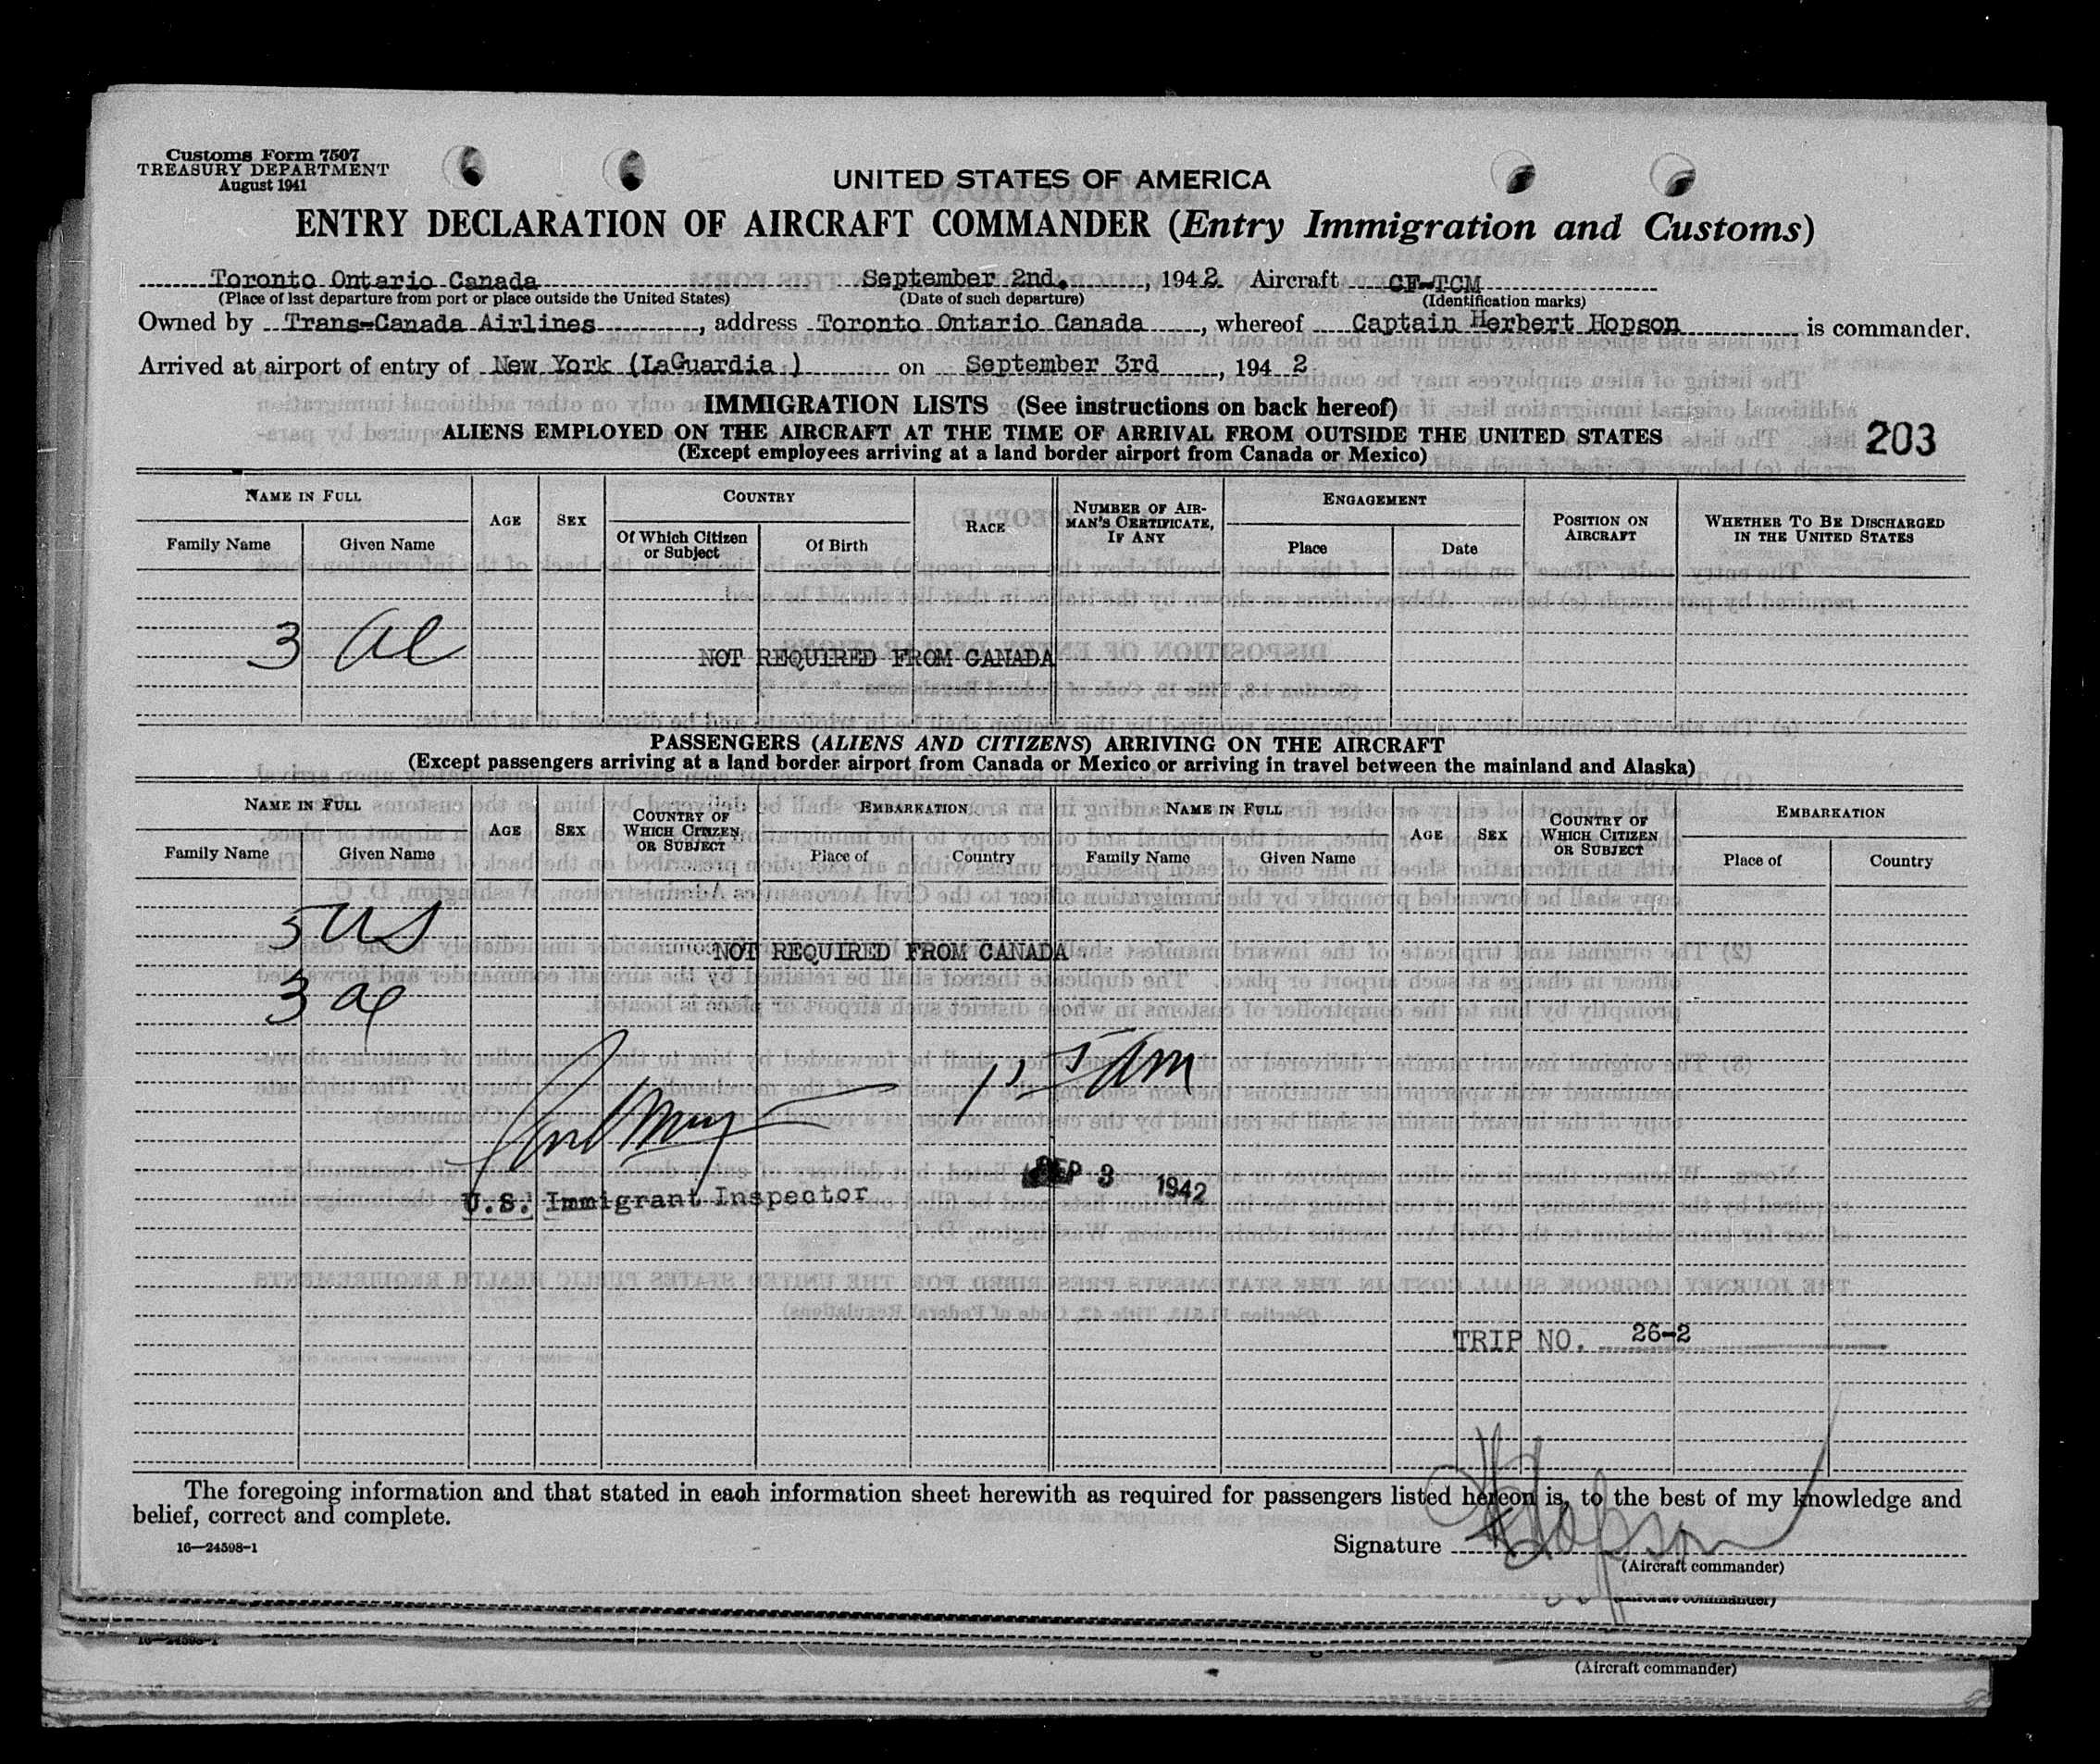 Customs Form 7507
TREASURY DEPARTMENT
August 1941
UNITED STATES OF AMERICA
ENTRY DECLARATION OF AIRCRAFT COMMANDER (Entry Immigration and Customs)
Toronto Ontario Canada September 2nd. , 1942 Aircraft CF-TCM
(Place of last departure from port or place outside the United States) (Date of such departure) (Identification marks)
Owned by Trans-Canada Airlines , address Toronto Ontario Canada , whereof Captain Herbert Hopson is commander.
Arrived at airport of entry of New York (LaGuardia ) on September 3rd , 194 2
IMMIGRATION LISTS (See instructions on back hereof)
ALIENS EMPLOYED ON THE AIRCRAFT AT THE TIME OF ARRIVAL FROM OUTSIDE THE UNITED STATES
(Except employees arriving at a land border airport from Canada or Mexico)
203
NAME IN FULL AGE SEX COUNTRY RACE NUMBER OF AIRMAN'S CERTIFICATE, IF ANY ENGAGEMENT POSITION ON AIRCRAFT WHETHER TO BE DISCHARGED IN THE UNITED STATES
Family Name Given Name Of Which Citizen or Subject Of Birth Place Date
3 al
NOT REQUIRED FROM CANADA
PASSENGERS (ALIENS AND CITIZENS) ARRIVING ON THE AIRCRAFT
(Except passengers arriving at a land border airport from Canada or Mexico or arriving in travel between the mainland and Alaska)
NAME IN FULL AGE SEX COUNTRY OF WHICH CITIZEN OR SUBJECT EMBARKATION NAME IN FULL AGE SEX COUNTRY OF WHICH CITIZEN OR SUBJECT EMBARKATION
Family Name Given Name Place of Country Family Name Given Name Place of Country
5 US
NOT REQUIRED FROM CANADA
3 al
AM
SEP 3 1942
U.S. Immigrant Inspector
TRIP NO. 26-2
The foregoing information and that stated in each information sheet herewith as required for passengers listed hereon is, to the best of my knowledge and
belief, correct and complete.
16—24598-1
Signature H Hopson
(Aircraft commander)
(Aircraft commander)
16—24598-1
(Aircraft commander)